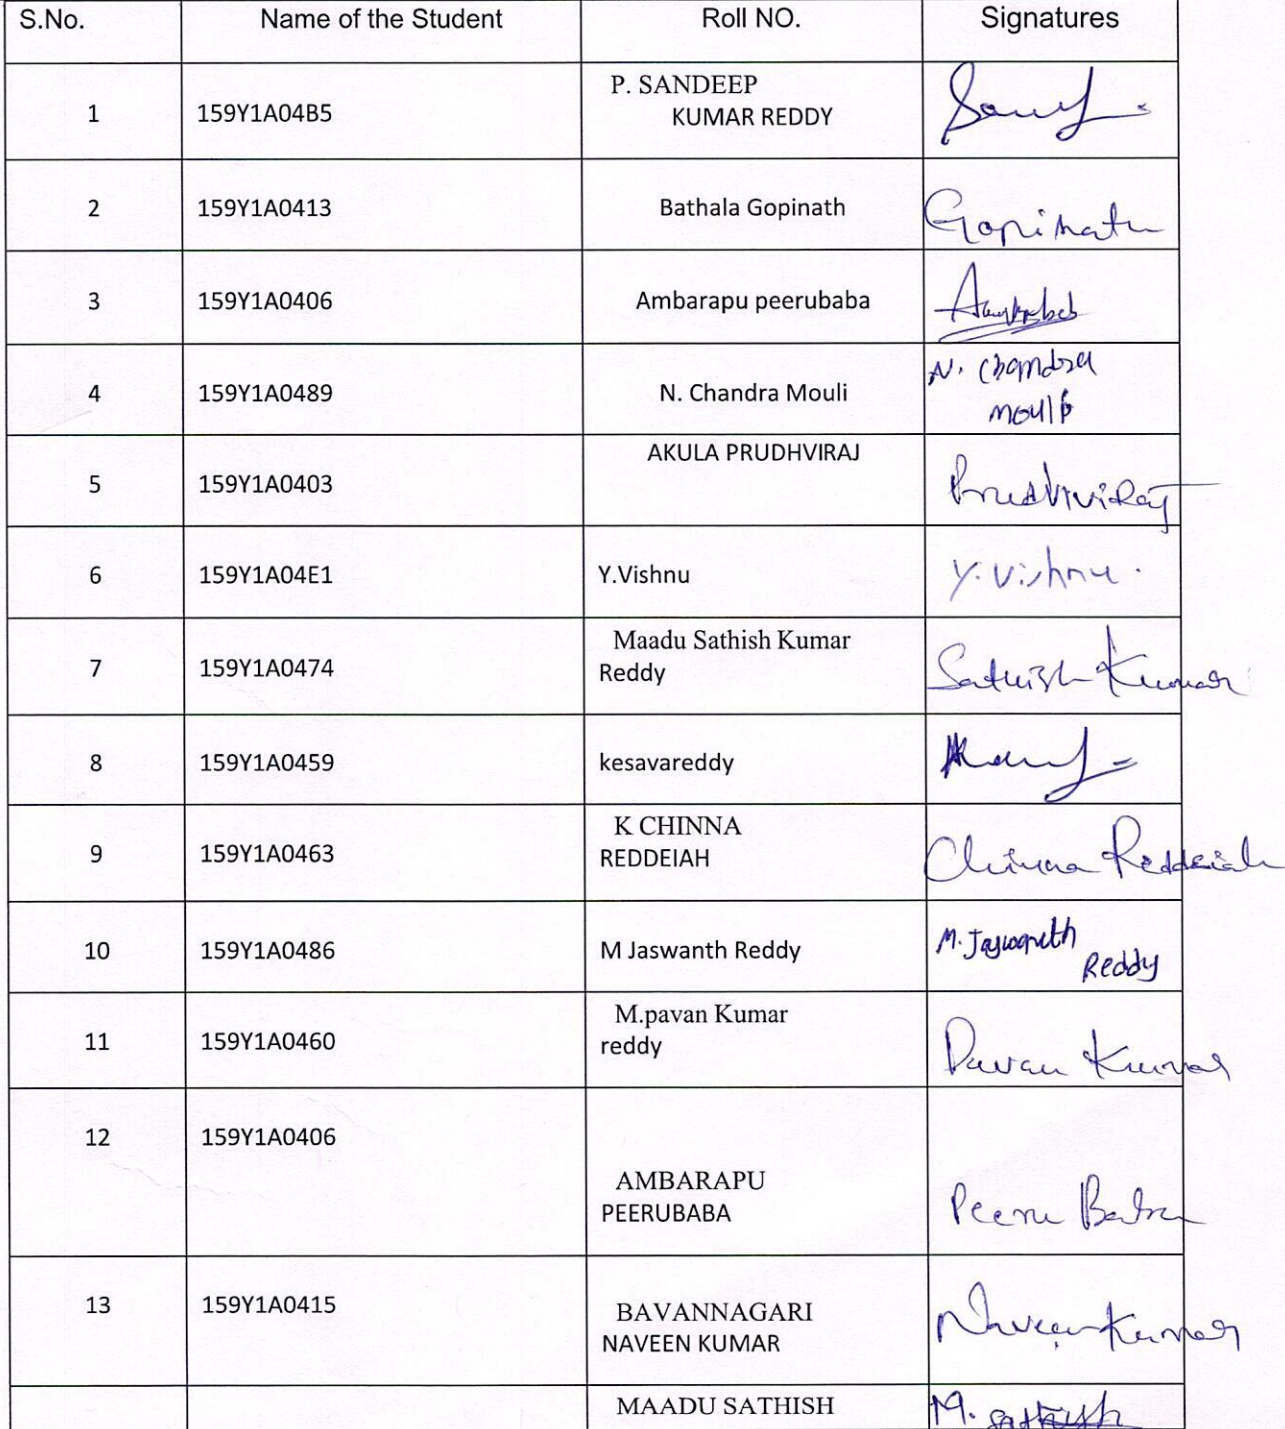 S.No. Name of the Student Roll NO. Signatures
P. SANDEEP
1 159Y1A04B5 KUMAR REDDY
2 159Y1A0413 Bathala Gopinath Gopinath
3 159Y1A0406 Ambarapu peerubaba
4 159Y1A0489 N. Chandra Mouli N. Chandra
Mouli
AKULA PRUDHVIRAJ
5 159Y1A0403 PrudhviRaj
6 159Y1A04E1 Y.Vishnu Y. Vishnu.
Maadu Sathish Kumar
7 159Y1A0474 Reddy Sathish Kumar
8 159Y1A0459 kesavareddy
K CHINNA
9 159Y1A0463 REDDEIAH Chinna Reddeiah
10 159Y1A0486 M Jaswanth Reddy M. Jaswanth
Reddy
M.pavan Kumar
11 159Y1A0460 reddy Pavan Kumar
12 159Y1A0406
AMBARAPU
PEERUBABA Peeru Baba
13 159Y1A0415 BAVANNAGARI
NAVEEN KUMAR Naveen Kumar
MAADU SATHISH M. Sathish